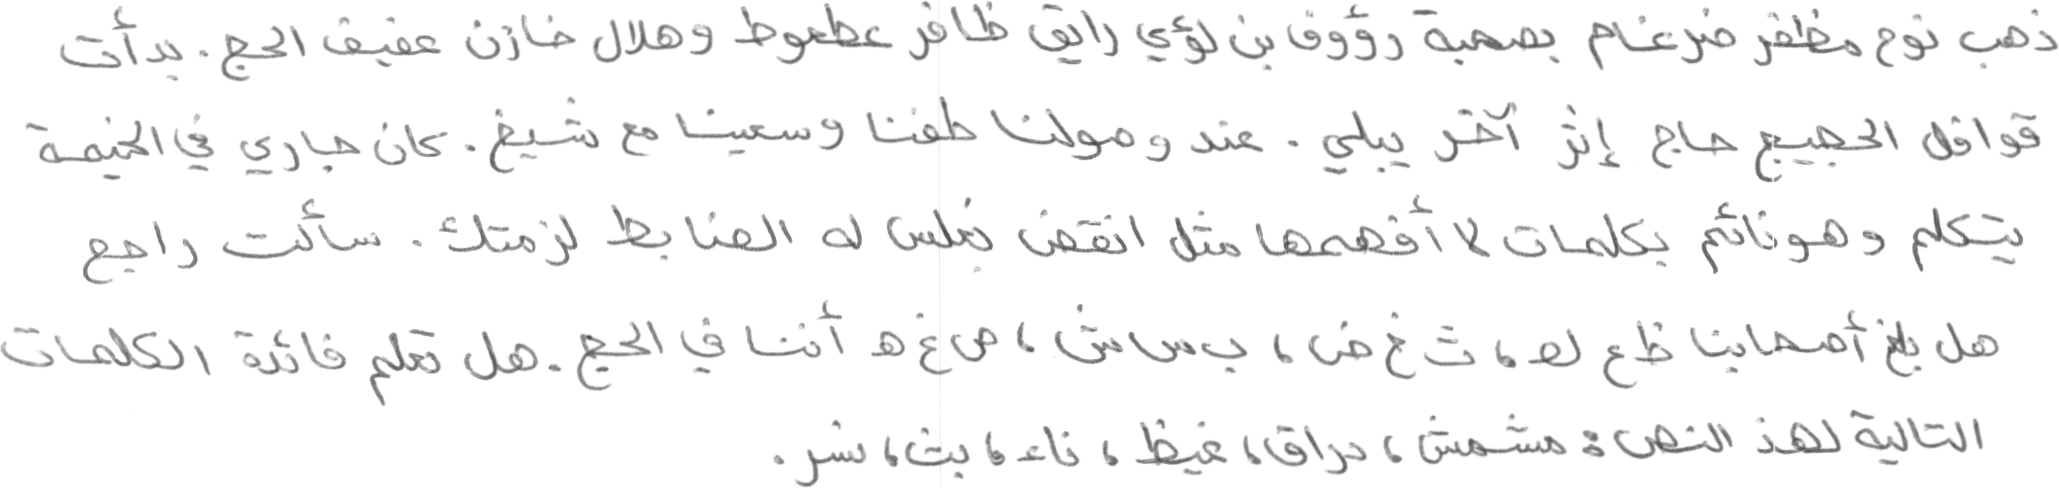 ذهب نوح مظفر ضرغام بصحبة رؤوف بن لؤي رايق ظافر عطعوط وهلال خازن عفيف الحج. بدأت
قوافل الحجيج حاج إثر آخر يبلي. عند وصولنا طفنا وسعينا مع شيخ. كان جاري في الخيمة
يتكلم وهو نائم بكلمات لا أفهمها مثل انقض نملس له الضابط لزمتك. سألت راجع
هل بلغ أصحابنا ظ ع لا، ث خ ض، ب س ش، ص غ ه أننا في الحج. هل تعلم فائدة الكلمات
التالية لهذ النص: مشمش، دراق، غيظ، ناء، بث، نسر.